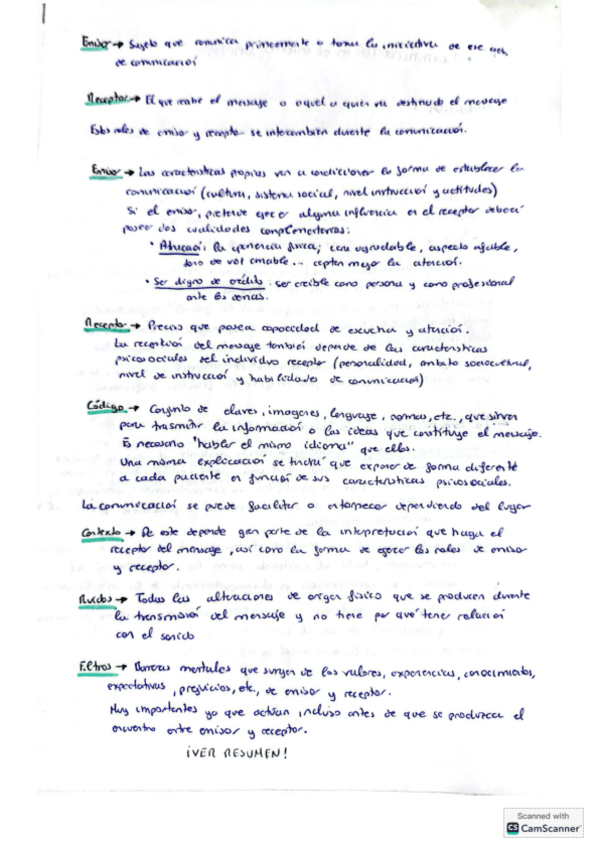 Emisor → Sujeto que comunica primeramente o toma la iniciativa de ese acto
de comunicación
Receptor → El que recibe el mensaje o aquel a quien va destinado el mensaje
Estos roles de emisor y receptor se intercambian durante la comunicación.
Emisor → Las características propias van a condicionar la forma de establecer la
comunicación (cultura, sistema social, nivel instrucción y actitudes)
Si el emisor, pretende ejercer alguna influencia en el receptor deberá
poseer dos cualidades complementarias:
• Atracción: la apariencia física; cara agradable, aspecto apacible,
tono de voz amable... captan mejor la atención.
• Ser digno de crédito: ser creíble como persona y como profesional
ante los demás.
Receptor → Precisa que posea capacidad de escucha y atención.
La recepción del mensaje también depende de las características
psicosociales del individuo receptor (personalidad, ámbito sociocultural,
nivel de instrucción y habilidades de comunicación)
Código → Conjunto de claves, imágenes, lenguaje, normas, etc., que sirven
para trasmitir la información o las ideas que constituye el mensaje.
Es necesario "hablar el mismo idioma" que ellos.
Una misma explicación se tendrá que exponer de forma diferente
a cada paciente en función de sus características psicosociales.
La comunicación se puede facilitar o entorpecer dependiendo del lugar
Contexto → De este depende gran parte de la interpretación que haga el
receptor del mensaje, así como la forma de ejercer los roles de emisor
y receptor.
Ruidos → Todas las alteraciones de origen físico que se producen durante
la transmisión del mensaje y no tiene por qué tener relación
con el sonido
Filtros → Barreras mentales que surgen de los valores, experiencias, conocimientos,
expectativas, prejuicios, etc, de emisor y receptor.
Muy importantes ya que actúan incluso antes de que se produzca el
encuentro entre emisor y receptor.
¡VER RESUMEN!
Scanned with
CS CamScanner